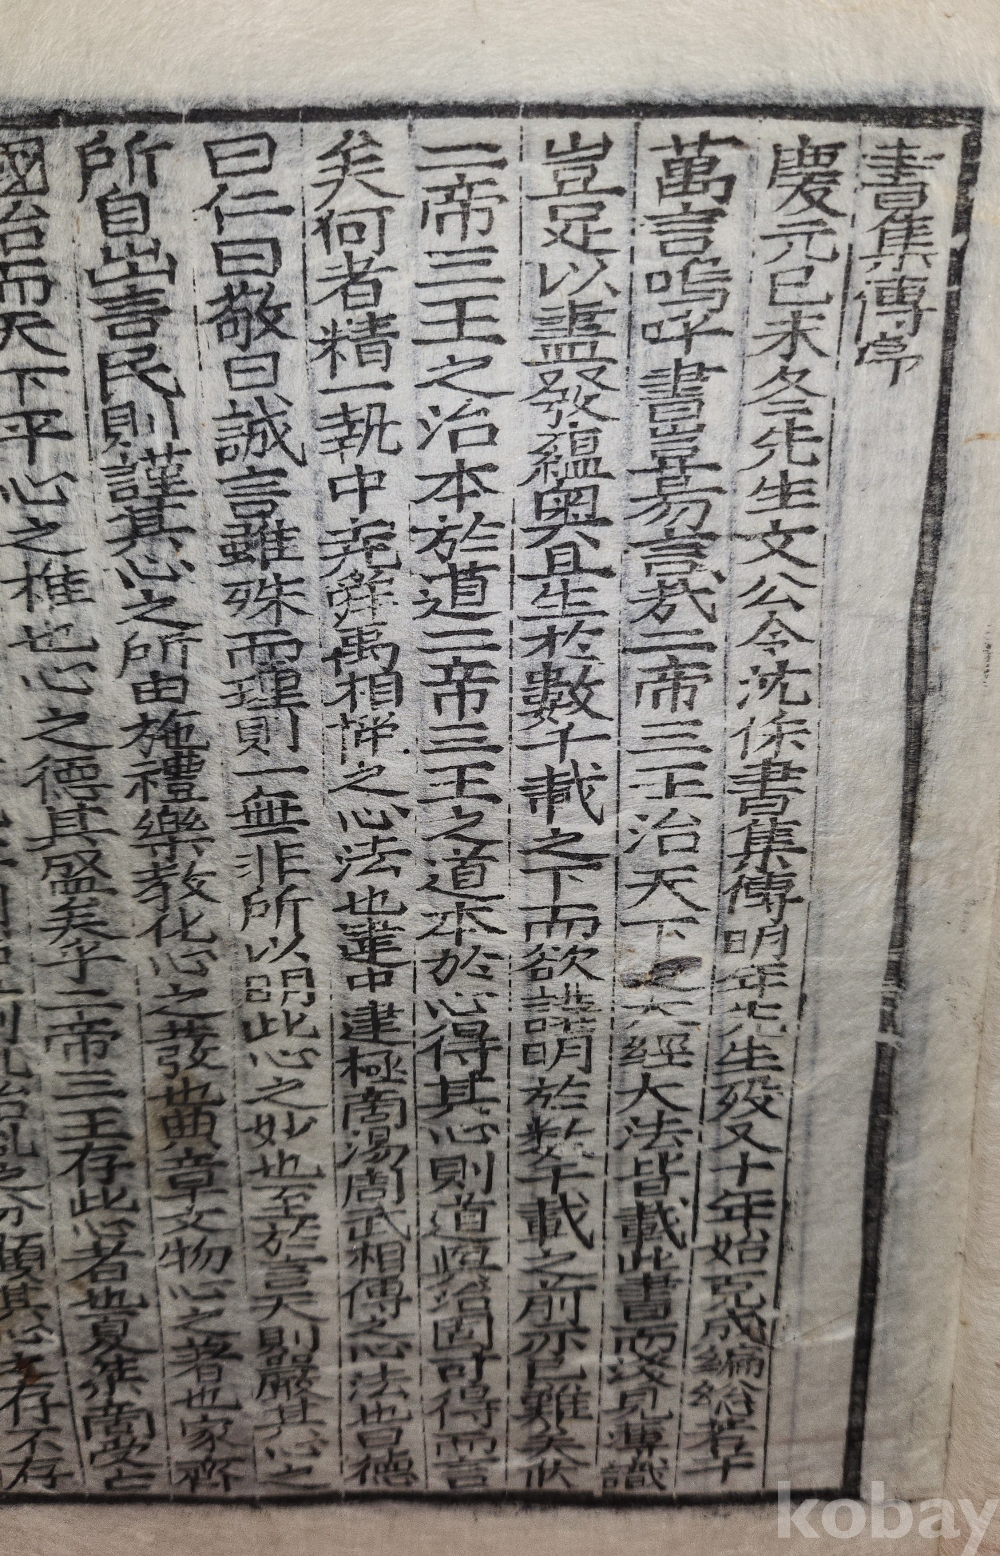 書集傳序
慶元己未冬先生文公令沈作書集傳明年先生歿又十年始克成編緫若干
萬言嗚呼書豈易言哉二帝三王治天下之大經大法皆載此書而淺見薄識
豈足以盡發蘊奧且生於數千載之下而欲講明於數千載之前亦已難矣然
二帝三王之治本於道二帝三王之道本於心得其心則道與治固可得而言
矣何者精一執中堯舜禹相授之心法也建中建極商湯周武相傳之心法也曰德
曰仁曰敬曰誠言雖殊而理則一無非所以明此心之妙也至於言天則嚴其心之
所自出言民則謹其心之所由施禮樂敎化心之發也典章文物心之著也家齊
國治而天下平心之推也心之德其盛矣乎二帝三王存此心者也夏桀商受亡
存不存
kobay